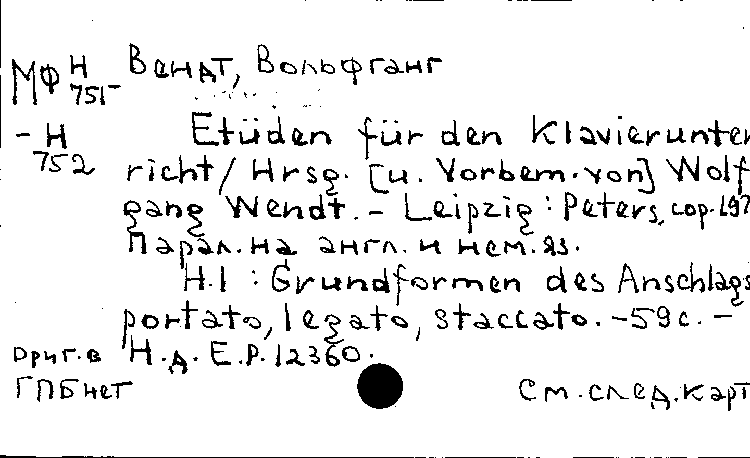 МФ Н 751- Вендт, Вольфганг
- Н 752 Etüden für den Klavierunter
richt / Hrsg. [u. Vorbem. von] Wolf
gang Wendt. - Leipzig : Peters, cop. 197
Парал. на англ. и нем. яз.
H.1 : Grundformen des Anschlags
portato, legato, staccato. - 59 с. -
Ориг. в Н.д. E.P. 12360.
ГПБ нет См. след. карт